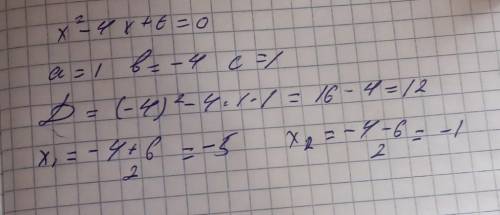 x² - 4x + 6 = 0
a = 1 b = -4 c = 1
D = (-4)² - 4·1·1 = 16 - 4 = 12
x₁ = (-4 + 6)/2 = -5 x₂ = (-4 - 6)/2 = -1